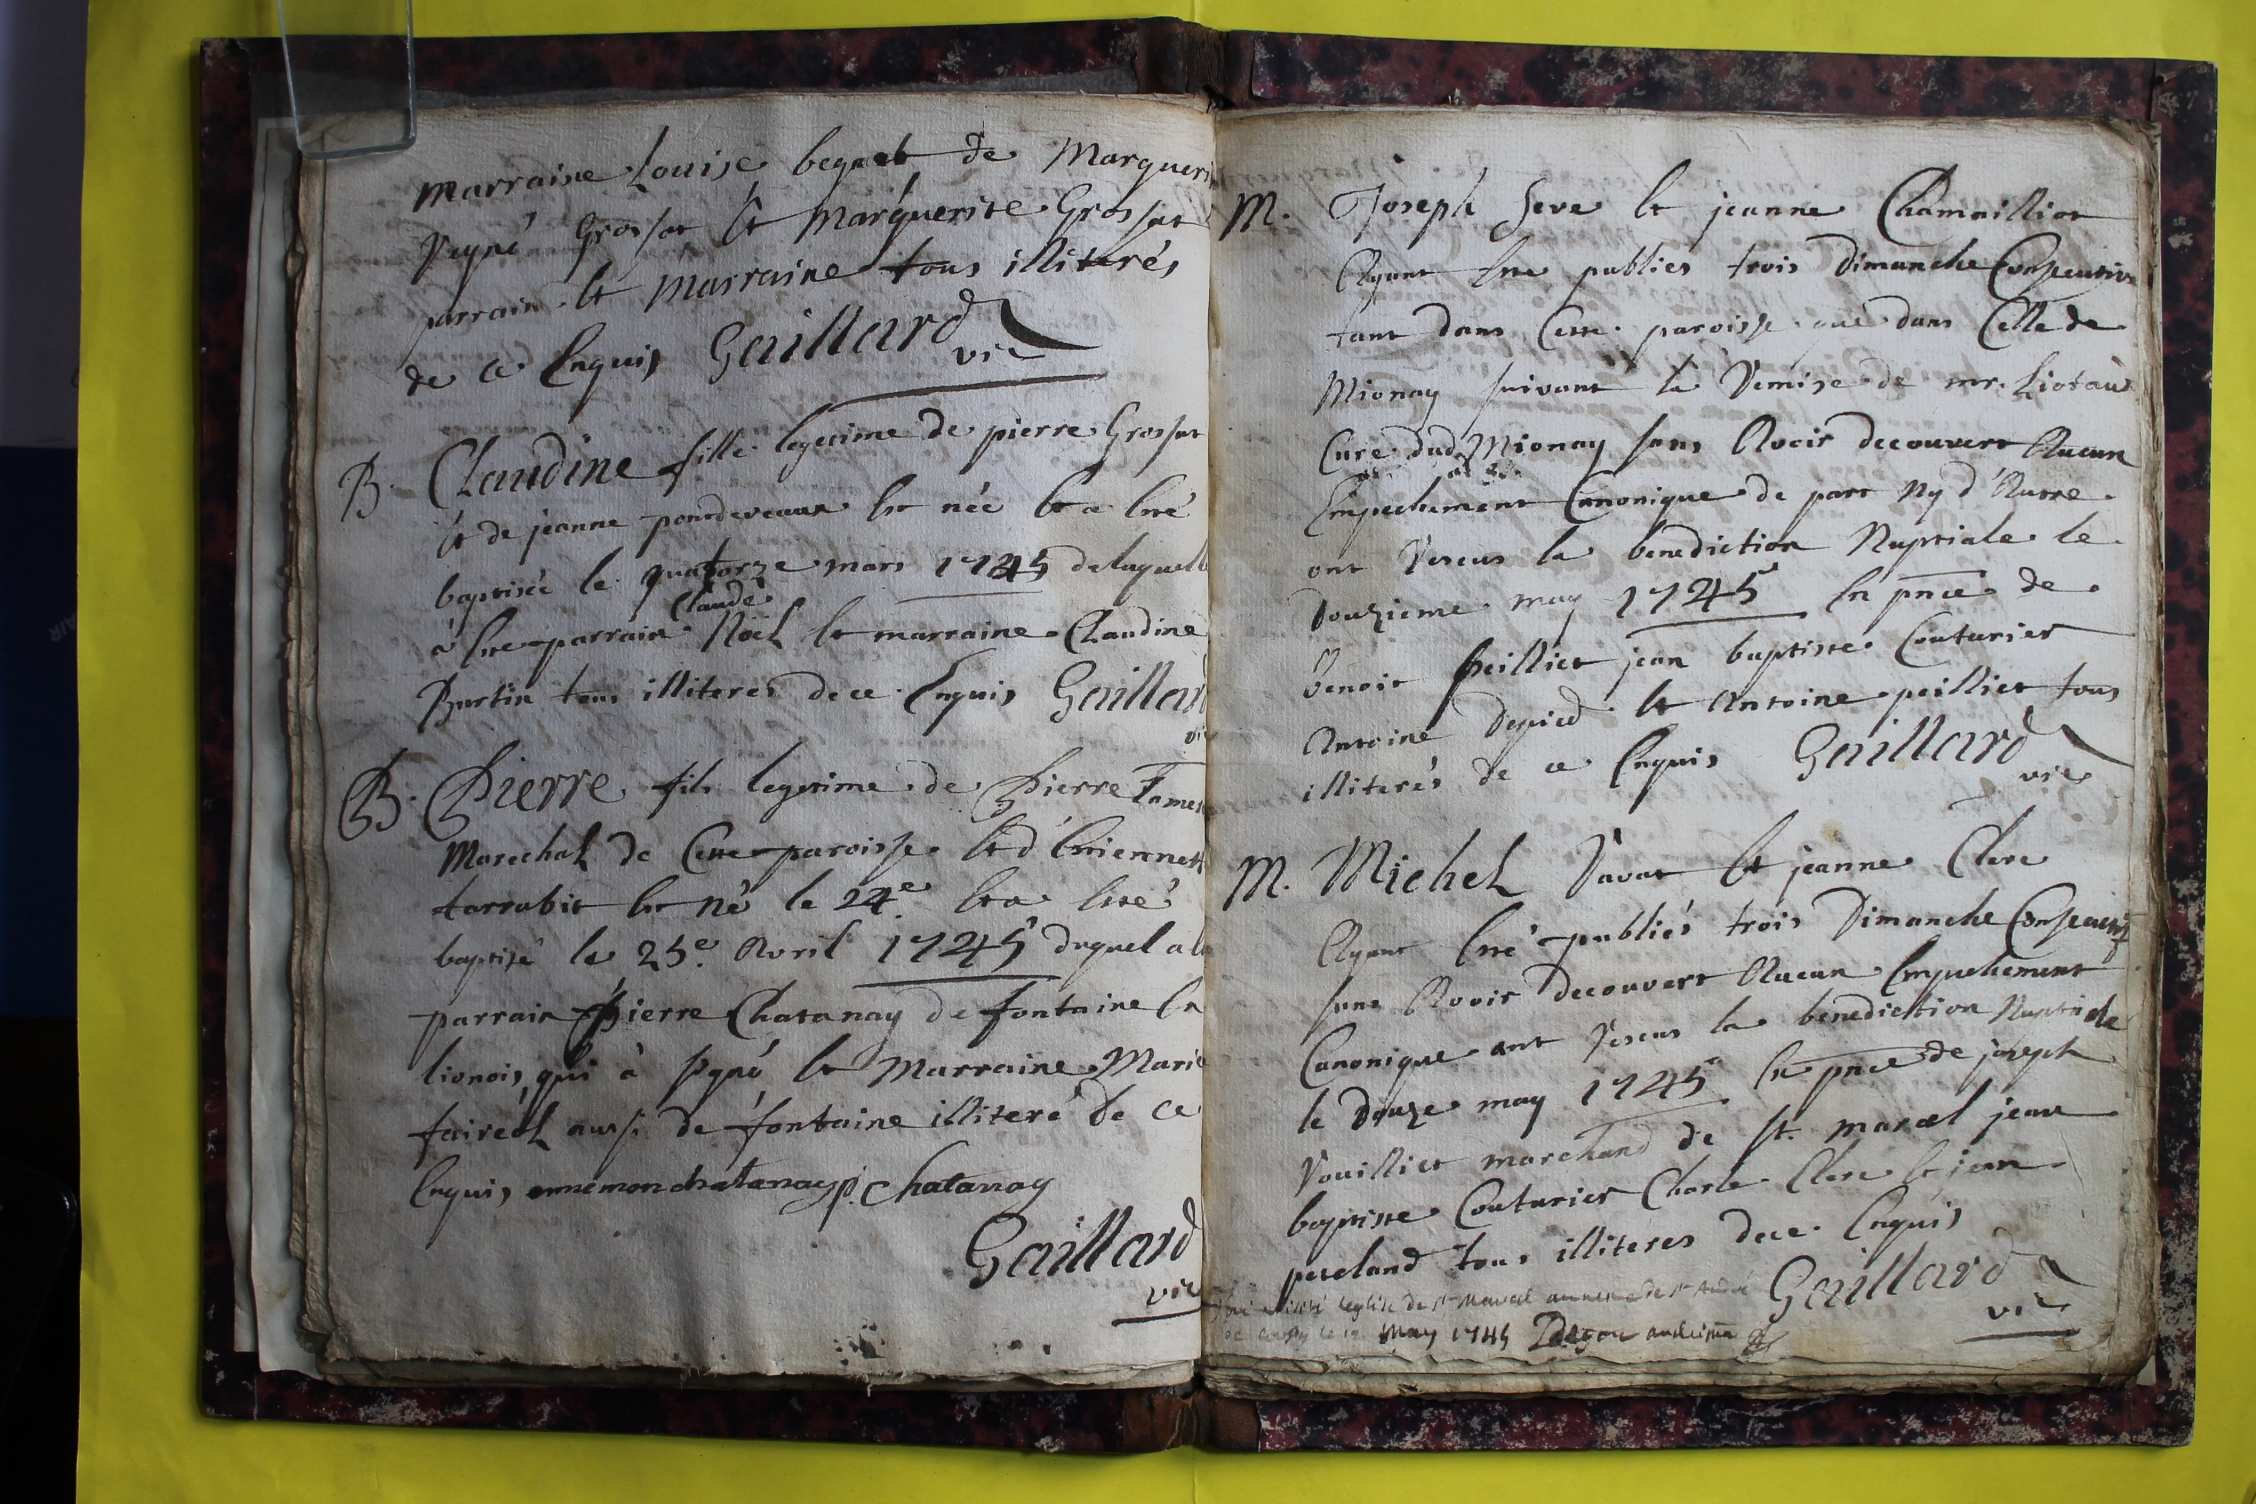 marraine Louise bequet de Margueri
Regné Grossat et Marguerite Grossat
parrain et Marraine tous illiterés
de ce Enquis Gaillard
vic
B. Claudine fille legetime de pierre Grossat
et de jeanne pontdeveaux est née et a eté
baptisée le quatorze mars 1745 delaquelle
Claude
à ete parrain Noël et marraine Claudine
Burtin tous illiteres de ce Enquis Gaillard
vic
B. Pierre fils legetime de Pierre
Marechal de Cette paroisse et d'Etiennette
tarrabit est né le 24e et a eté
baptisé le 25e Avril 1745 duquel a
parrain Pierre Chatanay de fontaine En
lionois qui à signé et Marraine Marie
aussi de fontaine illiteré de ce
Enquis ennemon chatanay p. Chatanay
Gaillard
vic
M. Joseph Seve et jeanne Chamailliot
Ayant ete publies trois Dimanche Consecutivs
tant dans Cette paroisse que dans Celle de
Mionay suivant la Remise de mr. Liotau
Cure dud Mionay sans Avoir decouvert Aucun
Empechement Canonique de part Ny d'Autre
ont Rescus la benediction Nuptiale le
Douzieme may 1745 En pnce de
benoit peilliet jean baptiste Couturier
Antoine Depied et Antoine peilliet tous
illiterés de ce Enquis Gaillard
vic
M. Michel Savat et jeanne Clerc
Ayant eté publiés trois Dimanche Consecutifs
sans Avoir decouvert Aucun Empechement
Canonique ont Rescus la benediction Nuptiale
le Douze may 1745 En pnce de joseph
Vouilliet marchand de st. marcel jean
baptiste Couturier Charle Clerc et jean
peseland tous illiteres de ce Enquis
Gaillard
vic
l'eglise de st Marcel annexe de st André
de Corsy le 12 May 1745